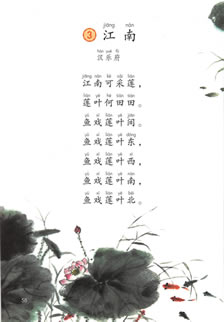 jiāng nán
3 江南
hàn yuè fǔ
汉乐府
jiāng nán kě cǎi lián
江南可采莲,
lián yè hé tián tián
莲叶何田田。
yú xì lián yè jiān
鱼戏莲叶间。
yú xì lián yè dōng
鱼戏莲叶东,
yú xì lián yè xī
鱼戏莲叶西,
yú xì lián yè nán
鱼戏莲叶南,
yú xì lián yè běi
鱼戏莲叶北。